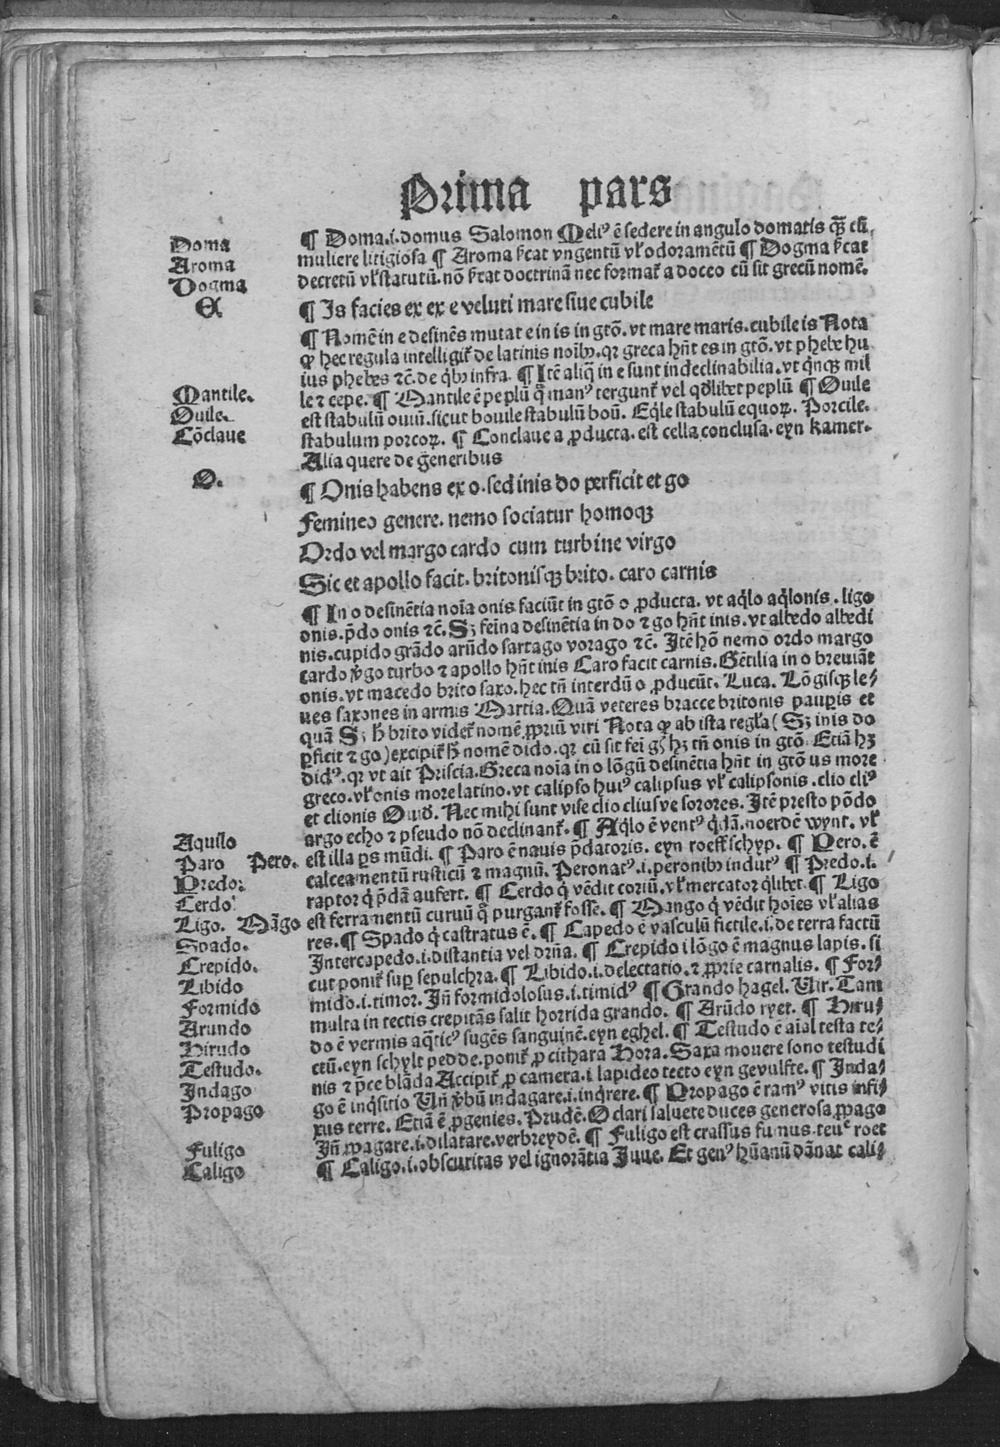 Prima pars
Doma
Aroma
Dogma
E
Mantile.
Ouile.
Cōclaue
O.
Aquilo
Paro Pero.
Predo.
Cerdo
Ligo. Māgo
Spado.
Crepido.
Libido
Formido
Arundo
Hirudo
Testudo.
Indago
Propago
Fuligo
Caligo
¶ Doma.i.domus Salomon Meliꝰ ē sedere in angulo domatis qꝫ cū
muliere litigiosa ¶ Aroma ſicat vngentū vl' odoramētū ¶ Dogma ſicat
decretū vl' statutū. nō ſicat doctrinā nec format̉ a doceo cū sit grecū nomē.
¶ Is facies ex ex e veluti mare siue cubile
¶ Nomē in e desinēs mutat e in is in gtō. vt mare maris. cubile is Nota
ꝙ hec regula intelligit̉ de latinis noīb. qꝛ greca hn̄t es in gtō. vt phebe hu
ius phebes ⁊c̄. de qb infra. ¶ Itē aliq̄ in e sunt indeclinabilia. vt qnqꝫ mil
le ⁊ cepe. ¶ Mantile ē peplū q̄ manꝰ tergunt̉ vel qdlibet peplū ¶ Ouile
est stabulū ouiū. sicut bouile stabulū boū. Eqle stabulū equoꝝ. Porcile.
stabulum porcoꝝ. ¶ Conclaue a ꝓducta. est cella conclusa. eyn kamer.
Alia quere de gēneribus
¶ Onis habens ex o. sed inis do perficit et go
Femineo genere. nemo sociatur homoqꝫ
Ordo vel margo cardo cum turbine virgo
Sic et apollo facit. britonisqꝫ brito. caro carnis
¶ In o desinētia noīa onis faciūt in gtō o ꝓducta. vt aqlo aqlonis. ligo
onis. p̄do onis ⁊c̄. Sꝫ feīna desinētia in do ⁊ go hn̄t inis. vt albedo albedi
nis. cupido grādo arūdo sartago vorago ⁊c̄. Itē hō nemo ordo margo
cardo v̄go turbo ⁊ apollo hn̄t inis Caro facit carnis. Gētilia in o breuiāt
onis. vt macedo brito saxo. hec tn̄ interdū o ꝓducūt. Luca. Lōgisqꝫ le⸗
ues saxones in armis Martia. Quā veteres bracce britonis paupis et
quā Sꝫ h̄ brito videt̉ nomē ꝓpriū viri Nota ꝙ ab ista regl'a (Sꝫ inis do
ꝑficit ⁊ go) excipit̉ h̄ nomē dido. qꝛ cū sit fei gn̄ hꝫ tn̄ onis in gtō. Etiā hꝫ
didꝰ. qꝛ vt ait Priscia. Greca noīa in o lōgū desinētia hn̄t in gtō us more
greco. vl' onis more latino. vt calipso huiꝰ calipsus vl' calipsonis. clio cliꝰ
et clionis Ouid. Nec mihi sunt vise clio cliusve sorores. Itē presto pōdo
argo echo ⁊ pseudo nō declinant̉. ¶ Aqlo ē ventꝰ qdā. noerdē wynt. vl'
est illa ꝑs mūdi. ¶ Paro ē nauis p̄datoris. eyn roeff schyp. ¶ Pero. ē
calceamentū rusticū ⁊ magnū. Peronatꝰ. i. peronib indutꝰ ¶ Predo. i.
raptor q p̄dā aufert. ¶ Cerdo q vēdit coriū. vl' mercator qlibet. ¶ Ligo
est ferramentū curuū q̄ purgant̉ fosse. ¶ Mango q vēdit hoīes vl' alias
res. ¶ Spado q castratus ē. ¶ Capedo ē vasculū fictile. i. de terra factū
Intercapedo. i. distantia vel dr̄ia. ¶ Crepido i lōgo ē magnus lapis. si
cut ponit̉ suꝑ sepulchra. ¶ Libido. i. delectatio. ⁊ ꝓprie carnalis. ¶ For⸗
mido. i. timor. Jn̄ formidolosus. i. timidꝰ ¶ Grando hagel. Vir. Tam
multa in tectis crepitās salit horrida grando. ¶ Arūdo ryet. ¶ Hiru⸗
do ē vermis aqticꝰ sugēs sanguinē. eyn eghel. ¶ Testudo ē aīal testa te⸗
ctū. eyn schylt pedde. ponit̉ ꝓ cithara Hora. Saxa mouere sono testudi
nis ⁊ p̄ce blāda Accipit̉ ꝓ camera. i lapideo tecto eyn gevulfte. ¶ Inda⸗
go ē inqsitio Vn̄ v̄bū indagare. i. inqrere. ¶ Propago ē ramꝰ vitis infi⸗
xus terre. Etiā ē ꝓgenies. Prudē. O clari saluete duces generosa ꝓpago
Jn̄ ꝓpagare. i. dilatare. verbreydē. ¶ Fuligo est crassus fumus. teuᵉ roet
¶ Caligo. i. obscuritas vel ignorātia Juue. Et genꝰ hūanū dānat cali⸗